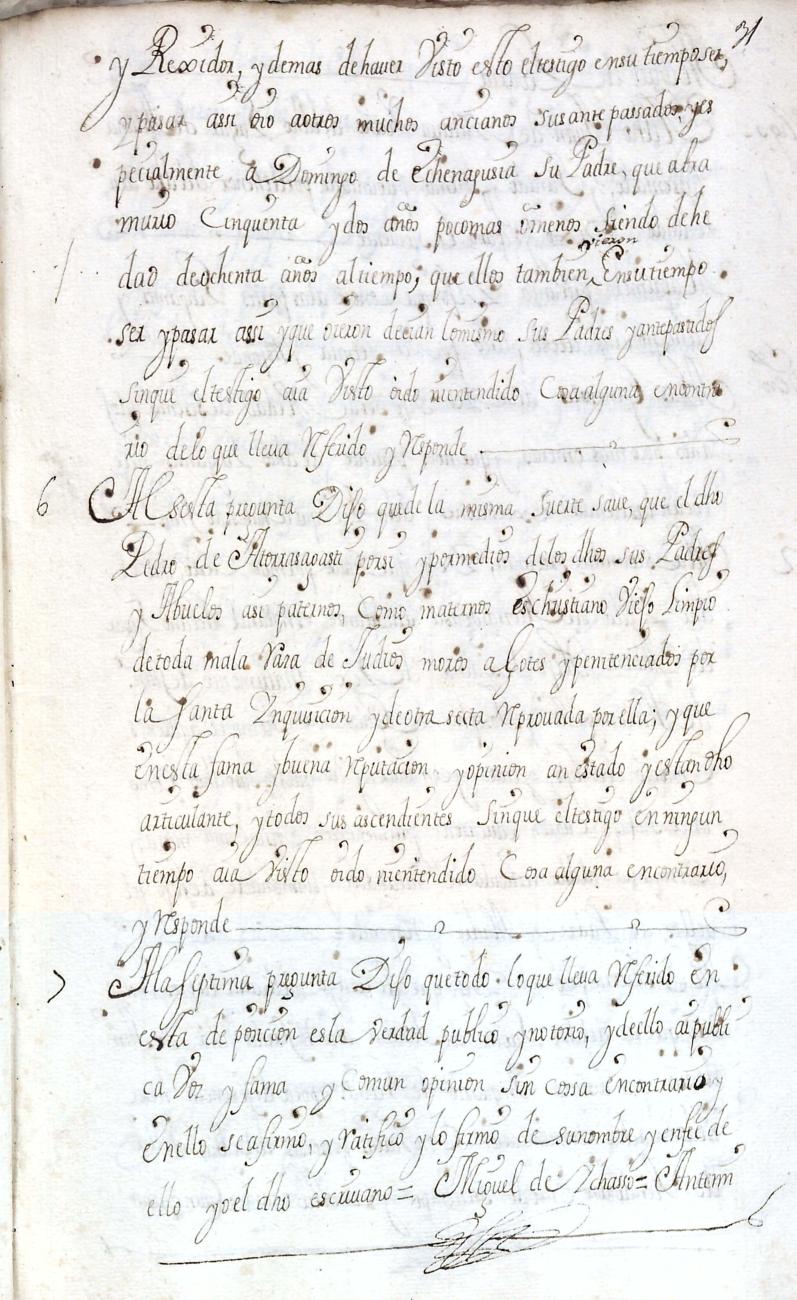 31
y Rexidor, y demas de haver Visto esto el testigo en su tiempo ser,
y pasar assi oio a otros muchos ancianos sus ante passados, y es
pecialmente a Domingo de Echenagusia su Padre, que abra
murio Cinquenta y dos años poco mas o menos siendo de he
vieron
dad de ochenta años al tiempo, que ellos tambien, En su tiempo
ser y pasar assi y que oieron decian lo mismo sus Padres y antepasados
sin que el testigo aia Visto oido ni entendido Cosa alguna en contra
rio de lo que lleva Referido y Responde
6 A la sexta pregunta Dijo que de la misma suerte save, que el dho
Pedro de Atorrasagasti por si y por medios de los dhos sus Padres
y Abuelos asi paternos, Como maternos es christiano Viejo Limpio
de toda mala Raza de Judios moros agotes y penitenciados por
la Santa Ynquisicion y de otra secta Reprovada por ella; y que
en esta fama y buena Reputacion y opinion an estado y estan dho
articulante, y todos sus ascendientes sin que el testigo en ningun
tiempo aia Visto oido, ni entendido Cosa alguna en contrario,
y Responde
7 A la septima pregunta Dijo que todo lo que lleva Referido en
esta deposicion es la verdad publico y notorio, y de ello ai publi
ca Voz y fama y Comun opinion sin Cossa en contrario y
en ello se afirmo, y Ratifico y lo firmo de su nombre y en fee de
ello yo el dho escrivano = Miguel de Uchasso = Antemi